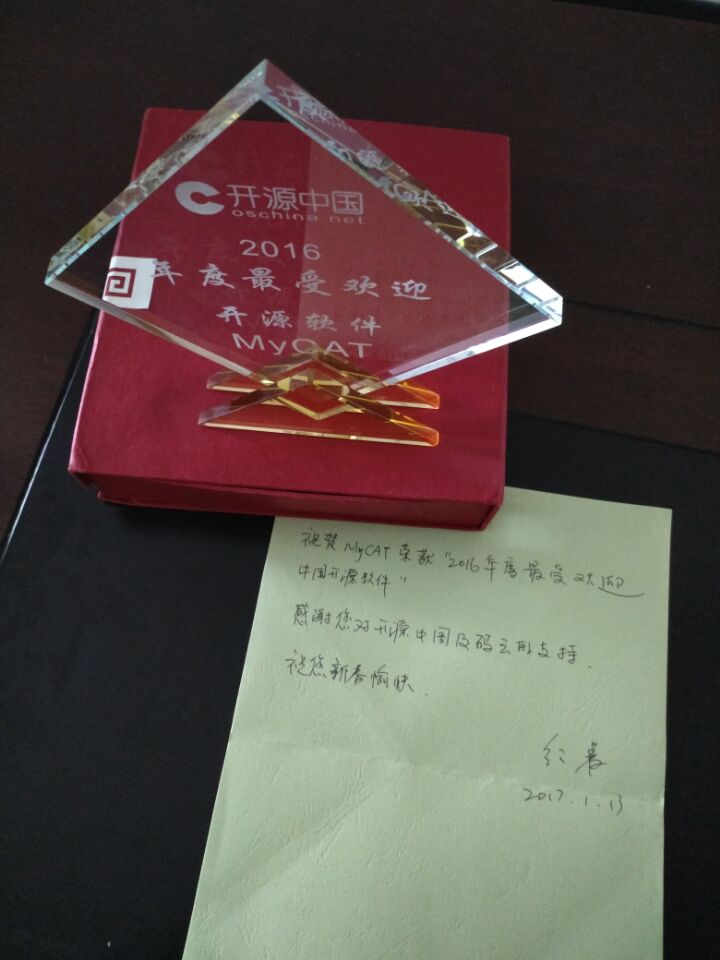 开源中国
oschina.net
2016
年度最受欢迎
开源软件
MyCAT
祝贺 MyCAT 荣获“2016年度最受欢迎
中国开源软件”
感谢您对开源中国及码云的支持.
祝您新春愉快.
红薯
2017.1.13